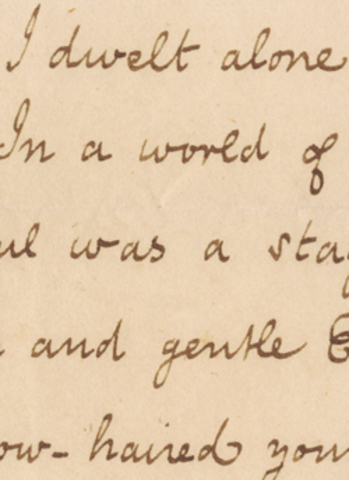 I dwelt alone
In a world of
ul was a stag
and gentle E
ow-haired your